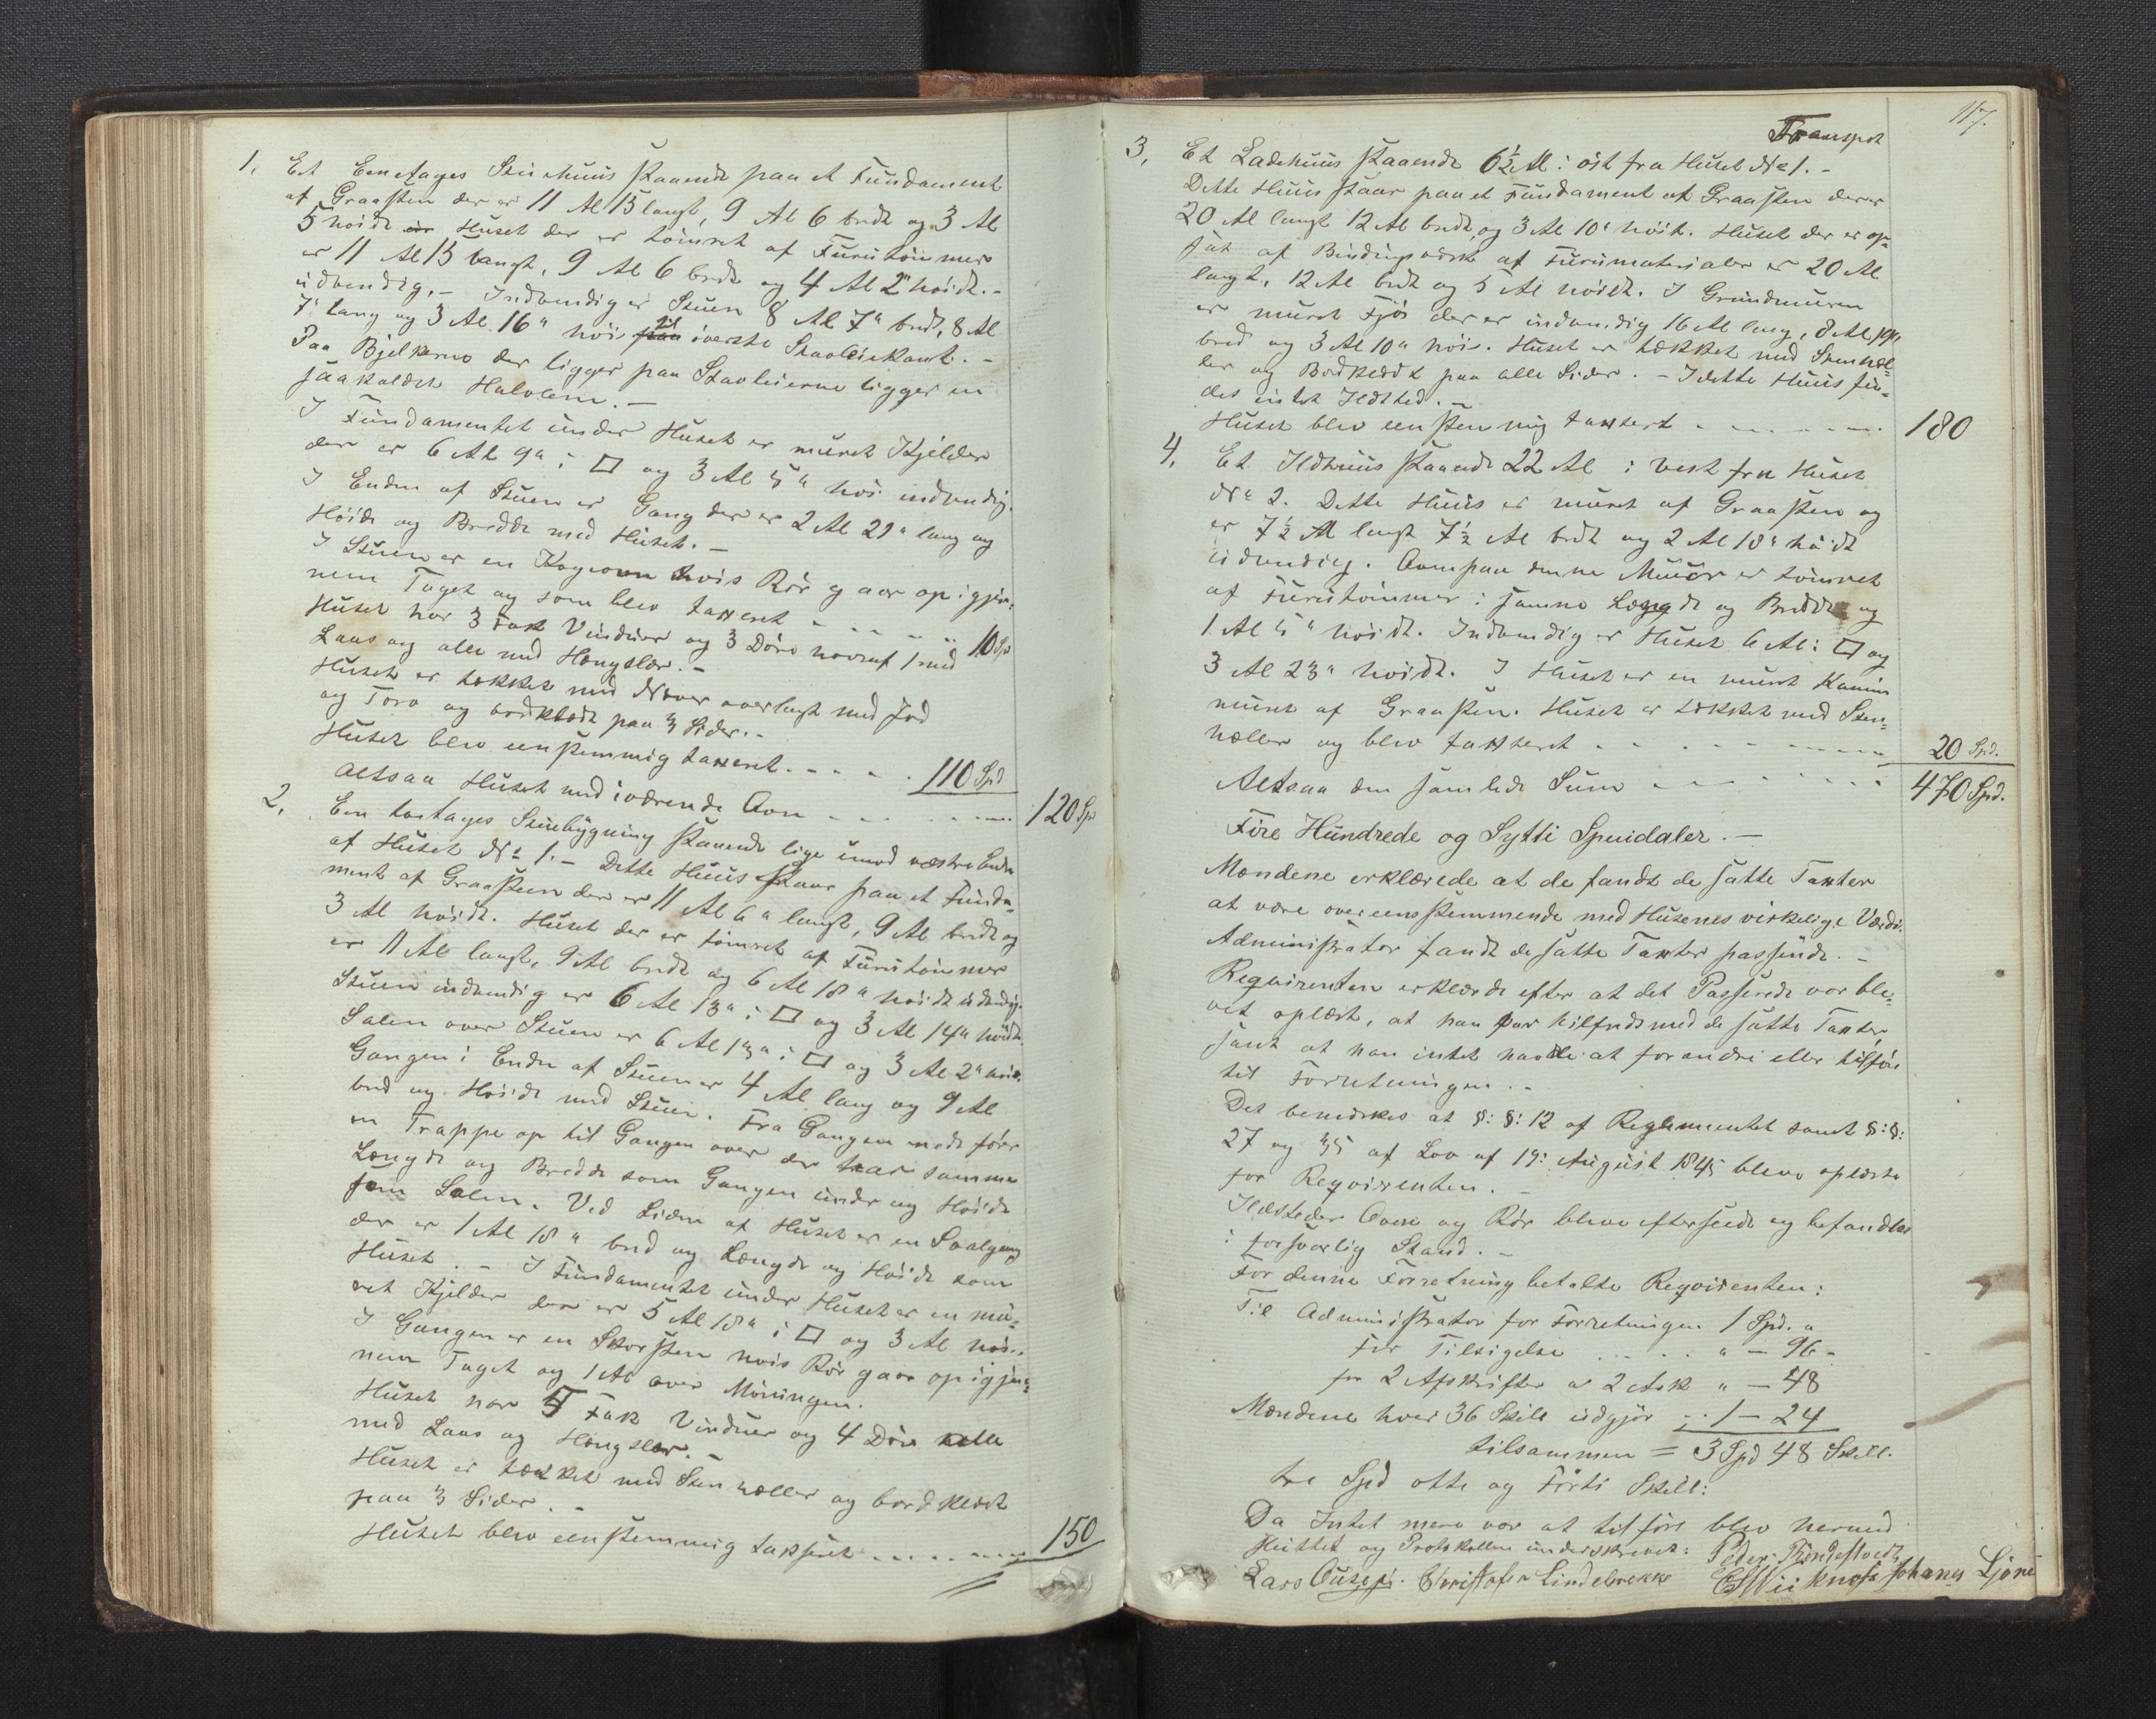 1. Et Eenetages Stuehuus staaende paa et Fundament
af Graasten der er 11 Al 13 langt, 9 Al 6 bredt og 3 Al
5 høidt Huset der er tømret af Furutømmer
er 11 Al 13 langt, 9 Al 6 bredt og 4 Al 2" høidt.-
udvendig.- Indvendig er Stuen 8 Al 7" bred, 8 Al
7" lang og 3 Al 16" høi til øverste Stavleiekant.-
Paa Bjelkerne der ligger paa Stavleierne ligger en
saakaldet Halvlem.-
I Fundamentet under Huset er muret Kjelder
der er 6 Al 9" i □ og 3 Al 5" høi indvendig.
I Enden af Stuen er Gang der er 2 Al 21" lang og
Høide og Bredde med Huset.-
I Stuen er en Kogeovn hvis Rør gaar op igjen-
nem Taget og som blev taxeret - - - - - 10 Sp
Huset har 3 Fak Vinduer og 3 Døre hvoraf 1 med
Laas og alle med Hængsler.-
Huset er tækket med Næver overlagt med Jord
og Torv og bordklædt paa 3 Sider.-
Huset blev eenstemmig taxeret. - - - - 110 Spd
Altsaa Huset med iværende Ovn - - - - - - 120 Sp
2. Een toetages Stuebygning staaende lige imod vestre Ende
af Huset No 1.- Dette Huus staar paa et Funda-
ment af Graasteen der er 11 Al 6" langt, 9 Al bredt og
3 Al høidt. Huset der er tømret af Furutømmer
er 11 Al langt, 9 Al bredt og 6 Al 18" høidt udvendig.
Stuen indvendig er 6 Al 13" i □ og 3 Al 14" høidt.
Salen over Stuen er 6 Al 13" i □ og 3 Al 2" høi.
Gangen i Enden af Stuen er 4 Al lang og 9 Al
bred og Høide med Stuen. Fra Gangen nede fører
en Trappe op til Gangen over der har samme
Længde og Bredde som Gangen under og Høide
som Salen. Ved Siden af Huset er en Svalgang
der er 1 Al 18" bred og Længde og Høide som
Huset.- I Fundamentet under Huset er en mu-
ret Kjelder der er 5 Al 18" i □ og 3 Al høi.
I Gangen er en Skorsten hvis Rør gaar op igjen-
nem Taget og 1 Al over Møningen.
Huset har 5 Fak Vinduer og 4 Døre alle
med Laas og Hængsler.-
Huset er tækket med Steenheller og bordklædt
paa 3 Sider.-
Huset blev eenstemmig taxseret - - - - - - 150
117.
Transport
3. Et Ladehuus staaende 6½ Al: øst fra Huset No 1.-
Dette Huus staar paa et Fundament af Graasten der er
20 Al langt 12 Al bredt, og 3 Al 10" høit. Huset der er op-
sat af Bindingsværk af Furumaterialer er 20 Al
langt, 12 Al bredt og 5 Al høidt. I Grundmuren
er muret Fjøs der er indvendig 16 Al lang, 8 Al
bred og 3 Al 10" høi. Huset er tækket med Steenhel-
ler og Bordklædt paa alle Sider.- I dette Huus fin-
des intet Ildsted.-
Huset blev eenstemmig taxsert - - - - - - - 180
4. Et Ildhuus staaende 22 Al: vest fra Huset
No 2. Dette Huus er muret af Graasten og
er 7½ Al langt 7½ Al bredt og 2 Al 18" høidt
udvendig. Ovenpaa denne Muur er tømret
af Furutømmer i samme Længde og Bredde og
1 Al 5" høidt. Indvendig er Huset 6 Al: □ og
3 Al 23" høidt. I Huset er en muret Kamin
muret af Graasten. Huset er tækket med Steen-
heller og blev taxseret - - - - - - - - 20 Spd.
Altsaa den samlede Sum - - - - - - - 470 Spd.
Fire Hundrede og Sytti Speidaler.-
Mændene erklærede at de fandt de satte Taxter
at være overeensstemmende med Husenes virkelige Værdi.
Administrator fandt de satte Taxter passende.-
Reqvirenten erklærde efter at det Passerede var ble-
vet oplæst, at han var tilfreds med de satte Taxter,
samt at han intet havde at forandre eller tilføie
til Forretningen.-
Det bemærkes at §: §: 12 af Reglementet samt §: §:
27 og 35 af Lov af 19: August 1845 bleve oplæste
for Reqvirenten.-
Ildsteder Ovne og Rør bleve efterseede og befandtes
i forsvarlig Stand.-
For denne Forretning betalte Reqvirenten:
Til Administrator for Forretningen 1 Spd. "
For Tilsigelse . - - . " - 96 -
for 2 Afskrifter a 2 Ark " - 48
Mændene hver 36 Skill udgjør - 1 - 24
tilsammen = 3 Spd 48 Skill.
tre Spd otte og Førti Skill:
Da Intet mere var at tilføre blev hermed
sluttet og Protokollen underskrevet: Peder
Lars Christofer Lindebrekke Johannes